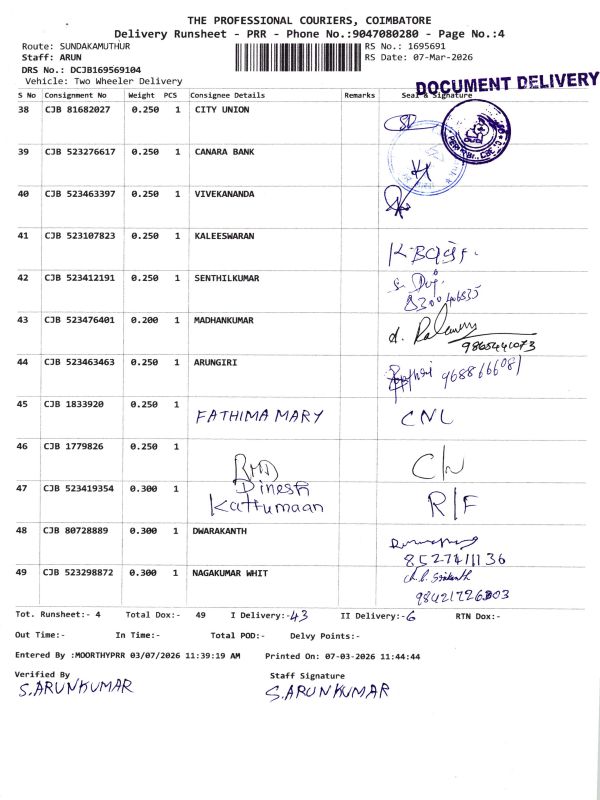 THE PROFESSIONAL COURIERS, COIMBATORE
Delivery Runsheet - PRR - Phone No.:9047080280 - Page No.:4
Route: SUNDAKAMUTHUR RS No.: 1695691
Staff: ARUN RS Date: 07-Mar-2026
DRS No.: DCJB169569104
Vehicle: Two Wheeler Delivery
DOCUMENT DELIVERY
S No Consignment No Weight PCS Consignee Details Remarks Seal & Signature
38 CJB 81682027 0.250 1 CITY UNION
39 CJB 523276617 0.250 1 CANARA BANK
40 CJB 523463397 0.250 1 VIVEKANANDA
41 CJB 523107823 0.250 1 KALEESWARAN
42 CJB 523412191 0.250 1 SENTHILKUMAR
43 CJB 523476401 0.200 1 MADHANKUMAR
9865441073
44 CJB 523463463 0.250 1 ARUNGIRI
45 CJB 1833920 0.250 1 FATHIMA MARY CNL
46 CJB 1779826 0.250 1
47 CJB 523419354 0.300 1 Dinesh R/F
Kattumaan
48 CJB 80728889 0.300 1 DWARAKANTH
49 CJB 523298872 0.300 1 NAGAKUMAR WHIT
Tot. Runsheet:- 4 Total Dox:- 49 I Delivery:-43 II Delivery:-6 RTN Dox:-
Out Time:- In Time:- Total POD:- Delvy Points:-
Entered By :MOORTHYPRR 03/07/2026 11:39:19 AM Printed On: 07-03-2026 11:44:44
Verified By Staff Signature
S.ARUNKUMAR S.ARUNKUMAR